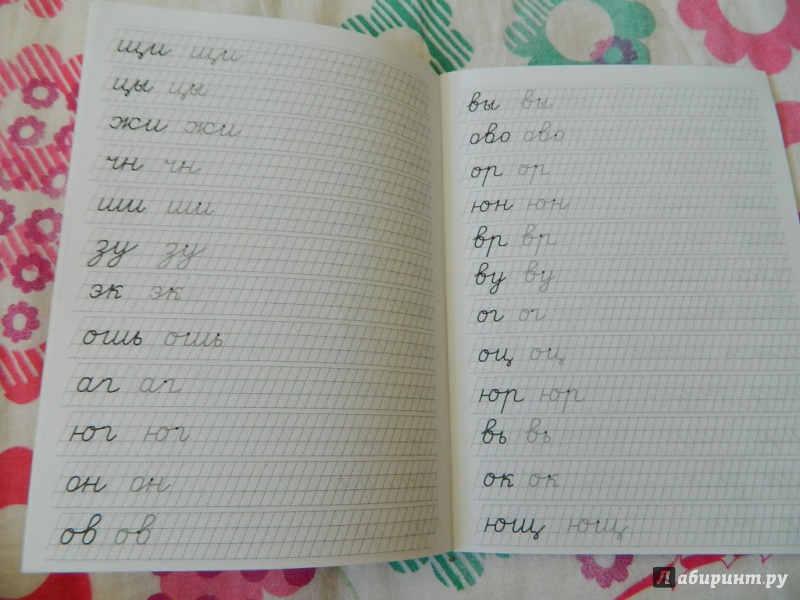 щи щи
цы цы
жи жи
чн чн
ши ши
зу зу
эк эк
ошь ошь
аг аг
юг юг
он он
ов ов
вы вы
ово ово
ор ор
юн юн
вр вр
ву ву
ог ог
оц оц
юр юр
вь вь
ок ок
ющ ющ
Лабиринт.ру